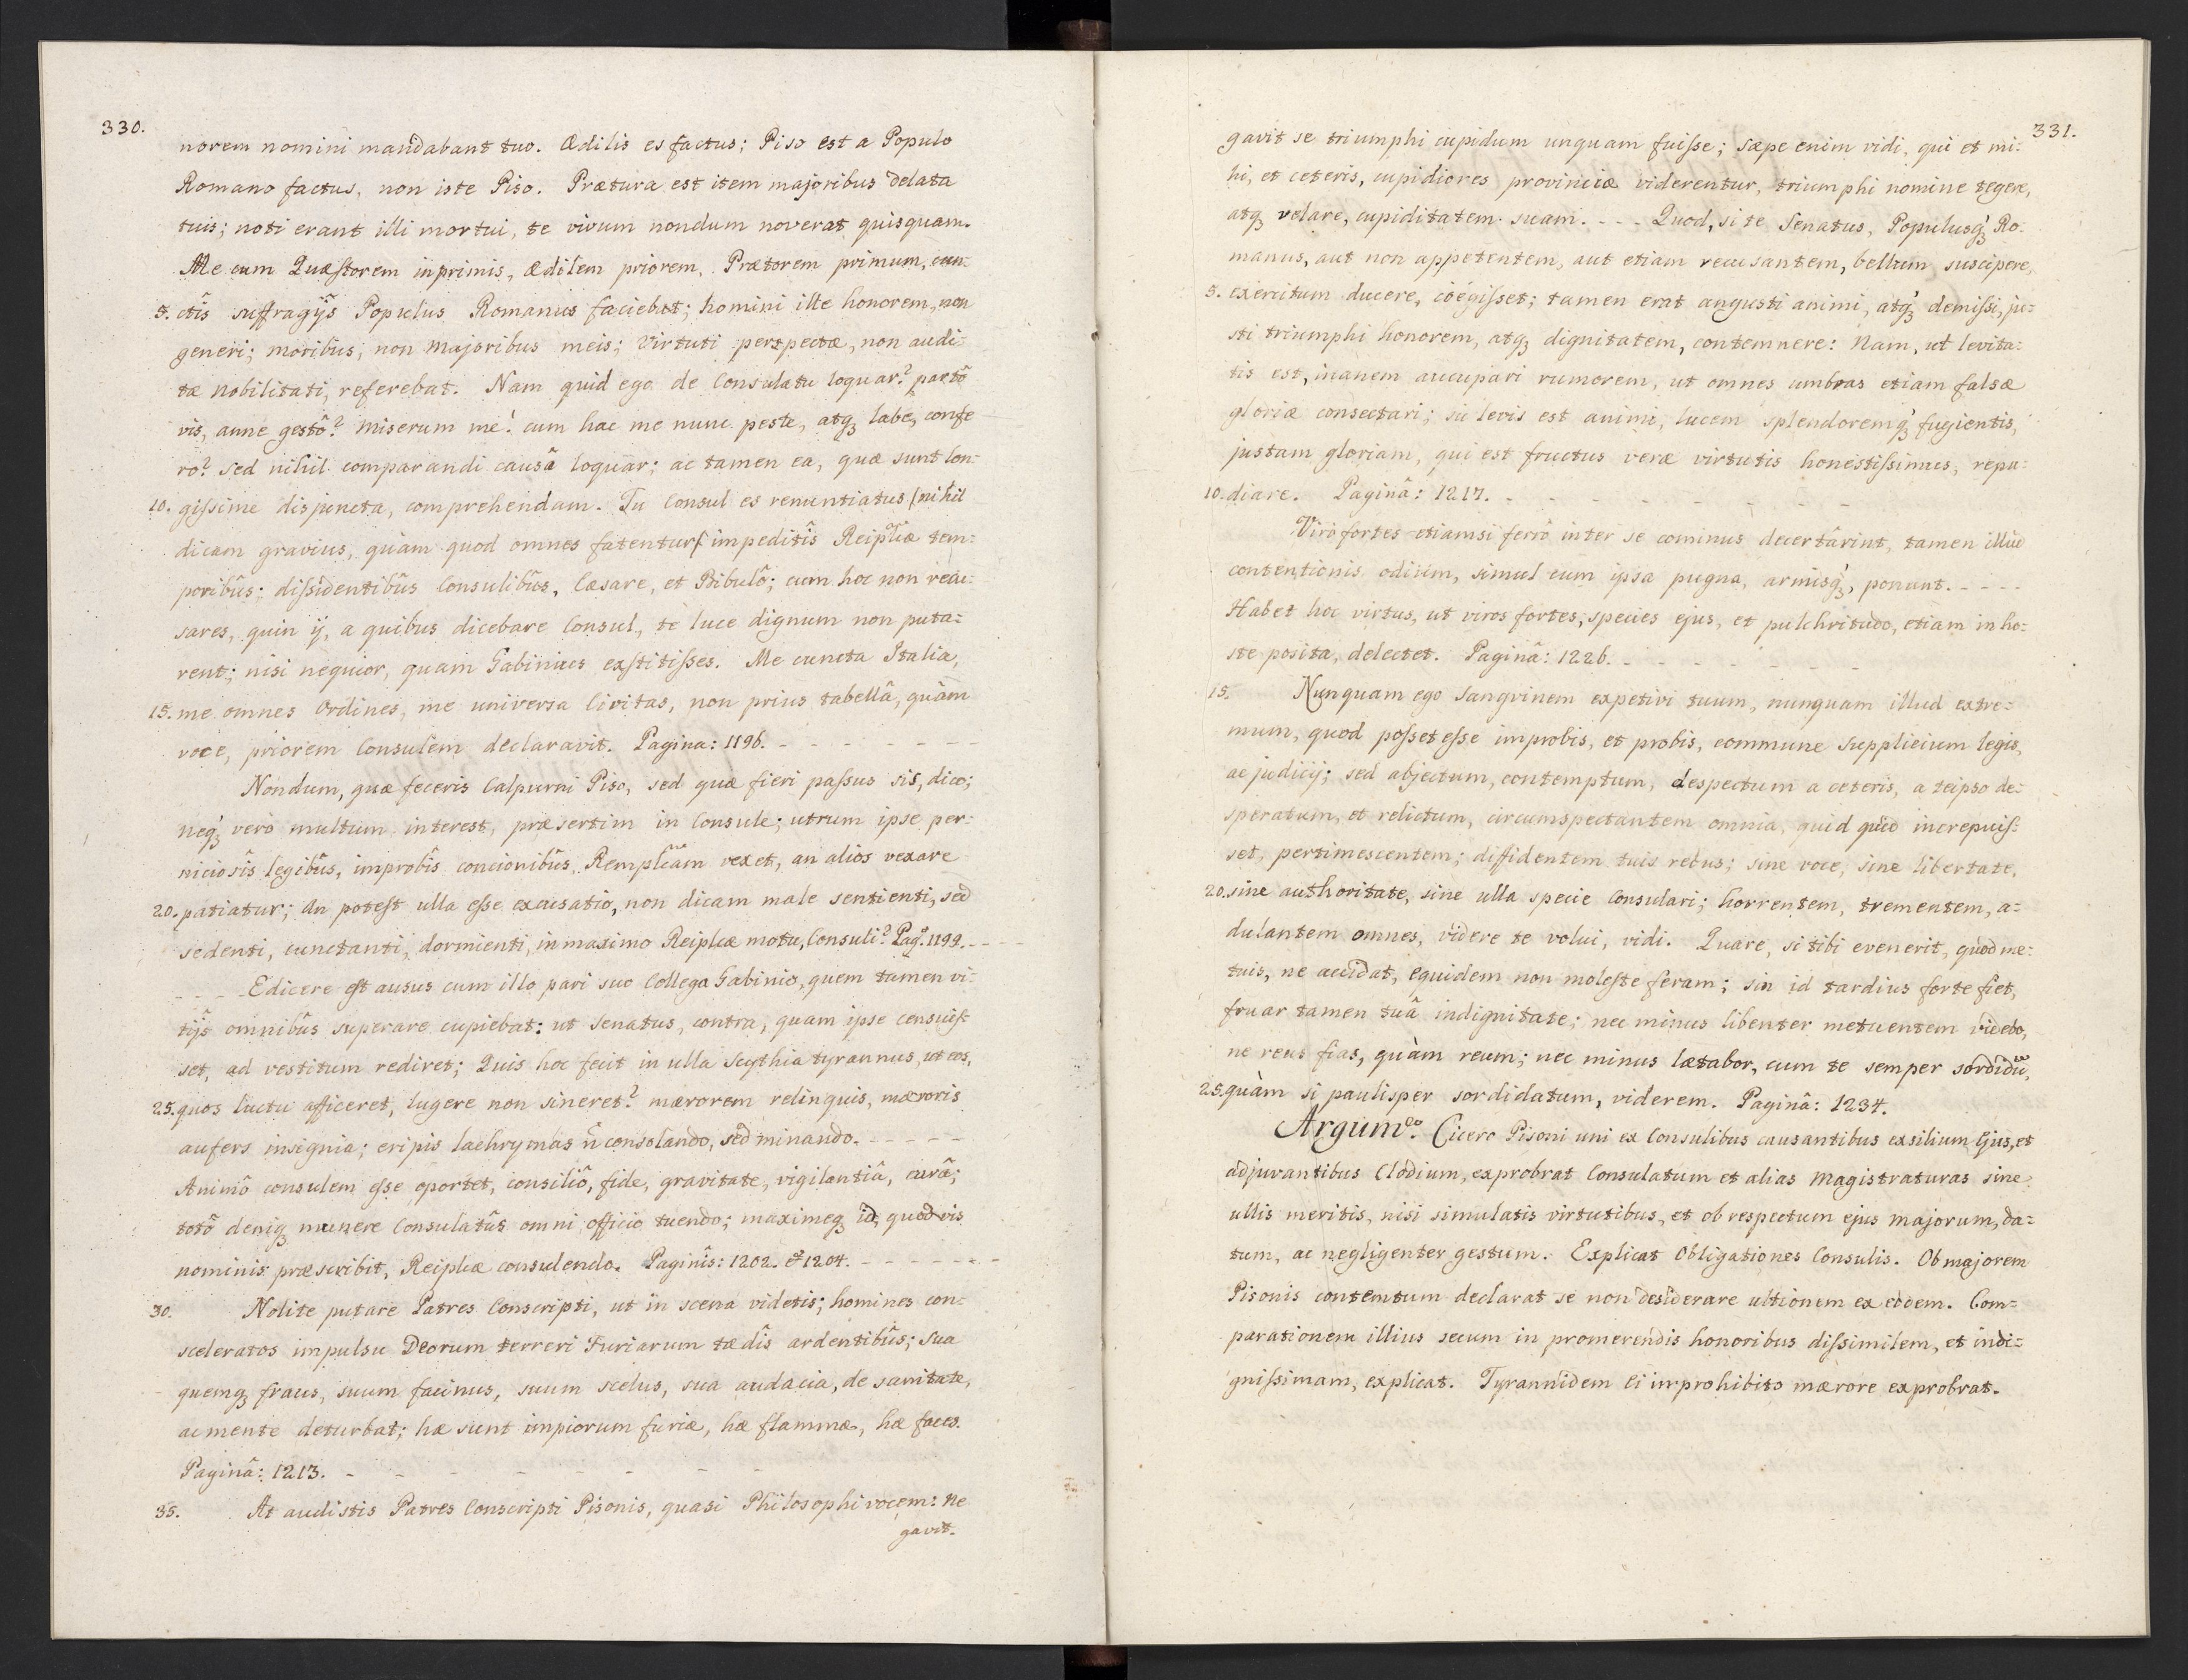 330.
norem nomini mandabant tuo. Ædilis es factus; Piso est a Populo
Romano factus, non iste Piso. Prætura est item majoribus delata
tuis; noti erant illi mortui, te vivum nondum noverat quisquam.
Me cum Quæstorem inprimis, Ædilem priorem, Prætorem primum, cun-
5. ctîs suffragijs Populus Romanus faciebat; homini ille honorem, non
generi; moribus, non Majoribus meis; Virtuti perspectæ, non audi-
tæ Nobilitati, referebat. Nam quid ego de Consulatu loquar? partô
vis, anne gestô? Miserum me! cum hac me nunc peste, atq; labe, confe
ro? sed nihil comparandi causâ loquar; ac tamen ea, quæ sunt lon-
10. gissime disjuncta, comprehendam. Tu Consul es renuntiatus (nihil
dicam gravius, quàm quod omnes fatentur) impeditîs Reiplicæ tem-
poribûs; dissidentibûs Consulibûs, Cæsare, et Bibulô; cum hoc non recu-
sares, quin ij, a quibus dicebare Consul, te luce dignum non puta-
rent; nisi nequior, quam Gabinius exstitisses. Me cuncta Italia,
15. me omnes Ordines, me universa Civitas, non prius tabellâ, quàm
voce, priorem Consulem declaravit. Pagina: 1196. - - - - - - -
Nondum, quæ feceris Calpurni Piso, sed quæ fieri passus sis, dico;
neq; vero multum interest, præsertim in Consule; utrum ipse per-
niciosîs legibûs, improbîs concionibûs, Remplicam vexet, an alios vexare
20. patiatur; An potest ulla esse excusatio, non dicam male sentienti, sed
sedenti, cunctanti, dormienti, in maximo Reiplicæ motu, Consuli? Pag. 1199. - - - -
- - - Edicere est ausus cum illo pari suo Collega Gabinio, quem tamen vi-
tijs omnibûs superare cupiebat: ut Senatus, contra, quam ipse censuis-
set, ad vestitum rediret; Quis hoc fecit in ulla Scythia tyrannus, ut eos,
25. quos luctu afficeret, lugere non sineret? mærorem relinquis, mæroris
aufers insignia; eripis lachrymas n̄ consolando, sed minando. - - - - -
Animô consulem esse oportet, consiliô, fide, gravitate, vigilantiâ, curâ;
totô deniq; munere Consulatûs omni officio tuendo; maximeq; id, quod vis
nominis præscribit, Reiplicæ consulendo. Paginîs: 1202. et 1204. - - - - - - -
30. Nolite putare Patres Conscripti, ut in scena videtis; homines con-
sceleratos impulsu Deorum terreri Furiarum tædîs ardentibûs; sua
quemq; fraus, suum facinus, suum scelus, sua audacia, de sanitate,
ac mente deturbat; hæ sunt impiorum furiæ, hæ flammæ, hæ faces.
Paginâ: 1213. - - - - - - -
35. At audistis Patres Conscripti Pisonis, quasi Philosophi vocem: ne
gavit.
331.
gavit se triumphi cupidum unquam fuisse; sæpe enim vidi, qui et mi-
hi, et ceteris, cupidiores provinciæ viderentur, triumphi nomine tegere,
atq; velare, cupiditatem suam. - - - Quod, si te Senatus, Populusq; Ro-
manus, aut non appetentem, aut etiam recusantem, bellum suscipere,
5. exercitum ducere, coëgisset; tamen erat angusti animi, atq; demissi, ju-
sti triumphi honorem, atq; dignitatem, contemnere: Nam, ut levita-
tis est, inanem aucupari rumorem, ut omnes umbras etiam falsæ
gloriæ consectari; sic levis est animi, lucem splendoremq; fugientis,
justam gloriam, qui est fructus veræ virtutis honestissimus, repu-
10. diare. Paginâ: 1217. - - - - - - - -
Viri fortes etiamsi ferrô inter se cominus decertârint, tamen illud
contentionis odium, simul cum ipsa pugna, armisq;, ponunt. - - - -
Habet hoc virtus, ut viros fortes, species ejus, et pulchritudo, etiam in ho-
ste posita, delectet. Paginâ: 1226. - - - - - - -
15. Nunquam ego Sangvinem expetivi tuum, nunquam illud extre-
mum, quod posset esse improbis, et probis, commune Supplicium legis,
ac judicij; sed abjectum, contemptum, despectum a ceteris, a teipso de-
speratum, et relictum, circumspectantem omnia, quid quid increpuis-
set, pertimescentem; diffidentem tuis rebus; sine voce, sine libertate,
20. sine authoritate, sine ulla specie Consulari; horrentem, trementem, a-
dulantem omnes, videre te volui, vidi. Quare, si tibi evenerit, quod me-
tuis, ne accidat, equidem non moleste feram; sin id tardius forte fiet,
fruar tamen tuâ indignitate; nec minus libenter metuentem videbo,
ne reus fias, quàm reum; nec minus lætabor, cum te semper sordidū,
25. quàm si paulisper sordidatum, viderem. Paginâ: 1234.
Argumto. Cicero Pisoni uni ex Consulibus causantibus exsilium Ejus, et
adjuvantibus Clodium, exprobrat Consulatum et alias Magistraturas sine
ullis meritis, nisi simulatis virtutibus, et ob respectum ejus majorum, da-
tum, ac negligenter gestum. Explicat Obligationes Consulis. Ob majorem
Pisonis contemtum declarat se non desiderare ultionem ex eodem. Com-
parationem illius secum in promerendis honoribus dissimilem, et indi-
gnissimam, explicat. Tyrannidem Ei in prohibito mærore exprobrat.